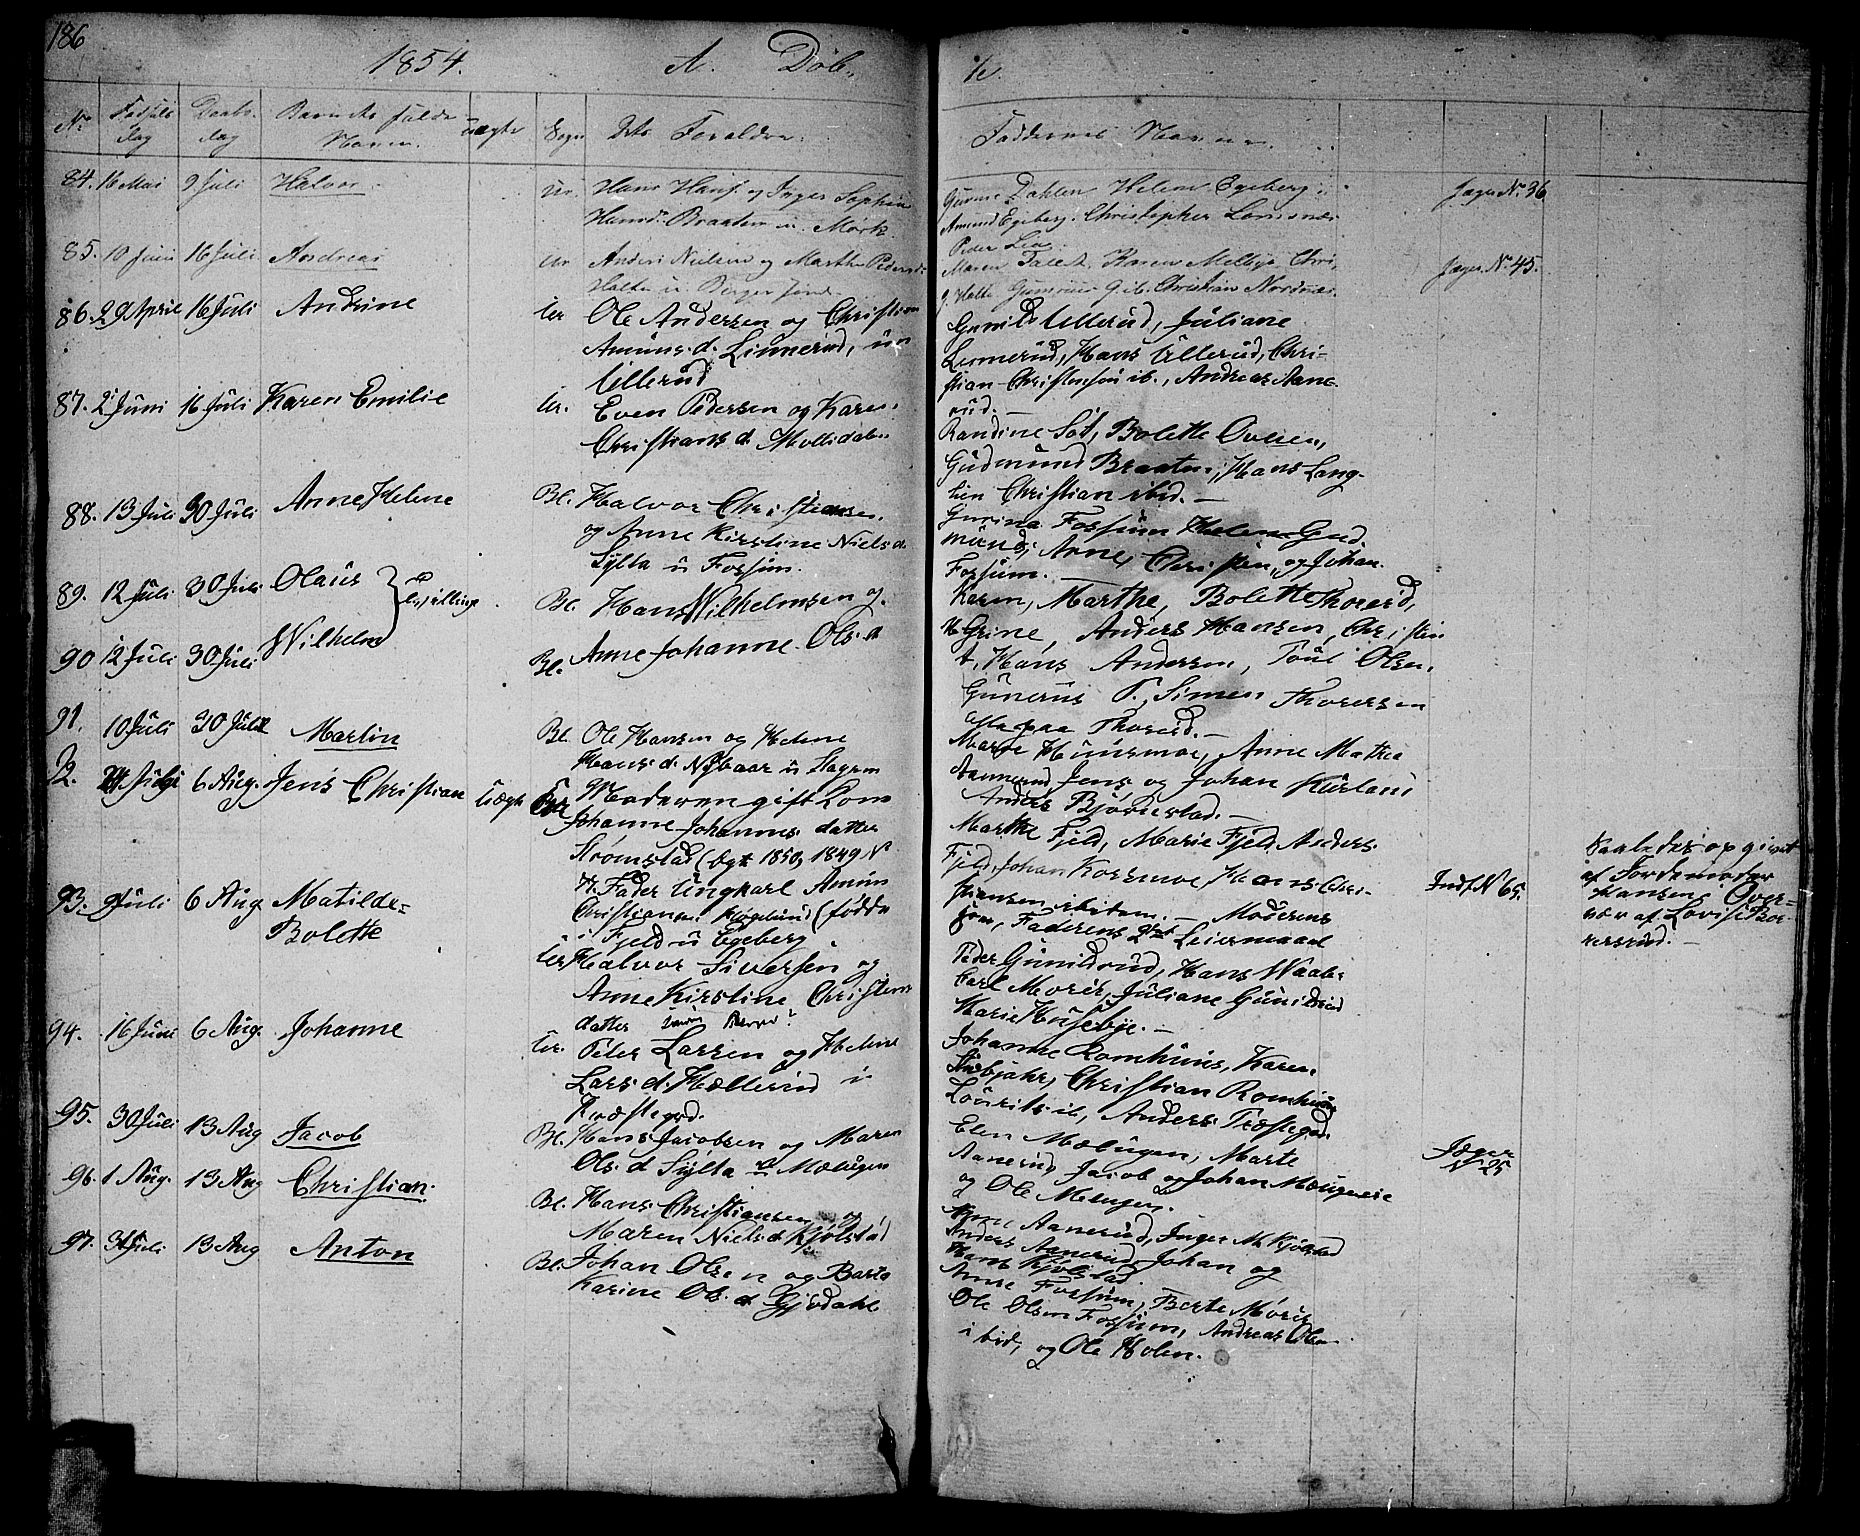 186
1854. A. Døb-
te.
No Fødsels Dag Daabs- dag Barnets fulde Navn. uægte Sogn Dets Forældre. Faddernes Navne.
84. 16 Mai 9 Juli Halvor. Ur. Hans Hans. og Inger Sophie
Hansd. Braaten u. Mørk.
Dahlen Helene Egeberg,
Amund Egeberg. Christopher
Peder Lie.
Jager No. 36
85. 10 Juni 16 Juli Andreas Ur Anders Nielsen og Marthe Peders
Holte u.
Maren Karen Melbye Chri,
Holte Christian Nordnæs.
Jager No. 45.
86. 29 April 16 Juli Andrine Ur Ole Andersen og Christian
Amunds. d. Linnerud, un
Ullerud
Gunild Ullerud, Juliane
Linnerud, Hans Ullerud, Chri-
stian Christensen ib., Andreas Aane-
rud.
87. 2 Juni 16 Juli Karen Emilie Ur. Even Pedersen og Karen
Christians d. Mollidalen
Randine Søt, Bolette Ovesen,
Gudmund Braaten, Hans Lang-
lien Christian ibid.
88. 13 Juli 30 Juli Anne Helene Bl. Halvor Christiansen
og Anne Kirstine Niels d.
Sylta u Fossum.
Gurina Fossum Helene Gud
mund, Anne, Christen, og Johan
Fossum.
89. 12 Juli 30 Juli Olaus Tvillinge Bl. Hans Wilhelmsen og
90 12 Juli 30 Juli Wilhelm Bl. Anne Johanne Ols. d
Karen, Marthe, Bolette Thorerd,
Grine, Anders Hansen, Christen
A, Hans Andersen, Poul Olsen,
Gunerus T. Simen Thoresen
Alle paa Thorerd.
91. 10 Juli 30 Juli Martin Bl. Ole Hansen og Helene
Hans. d. Nybaar u Hagen
Marie Huusmoe, Anne Mathea
Aannerud Jens og Johan Kurland
Anders Bjørnestad.
2. Juli 6 Aug. Jens Christian Uægte Ur Moder en gift Kone
Johanne Johannes datter
Strømstad (Ægt 1850, 1849 N
Fader Ungkarl Amun
Christiansen Kjøgelund (fødde
i Fjeld u Egeberg
Marthe Fjeld, Marie Fjeld. Anders
Fjeld, Johan Korsmoe, Hans Chri-
stiansen ibidem. — Moderens
Faderens 2det Leiermaal
Indf N 65.
Saaledes opgivet
af Jordemoder
Hansen i Over-
vær af Lovise Bor-
kersrud.
93. 9 Juli 6 Aug Matilde
Bolette
Ur Halvor Siversen og
Anne Kirstine Christian
datter
Peder Gunildrud, Hans Waab-
Carl Moris, Juliane Gunildrud
Marie Huseby.
94. 16 Juni 6 Aug. Johanne Ur. Peter Larsen og Helene
Lars. d. Hællerud u
Træstegod.
Johanne Romhuus, Karen
Christian Romhuus
Lourits ib, Anders Træstegod
95. 30 Juli 13 Aug Jacob Bl. Hans Jacobsen og Maren
Ols. d Sylta u Mælugen
Elen Mælugen, Marte
Aanerud Jacob og Johan
og Ole Melugen.
Jæger
N 25
96. 1 Aug. 13 Aug Christian. Bl. Hans Christiansen og
Maren Niels d Kjølstad
Anne Aanerud, Inger M. Kjølstad
Anders Aanerud, Johan og
Hans Kjølstad.
97. 31 Juli 13 Aug Anton Bl. Johan Olsen og Berte
Karine Ols. d Gjødahl
Anne Fossum, Berte Moris
Ole Olsen Fossum, Andreas Olsen
ibid, og Ole Holen.